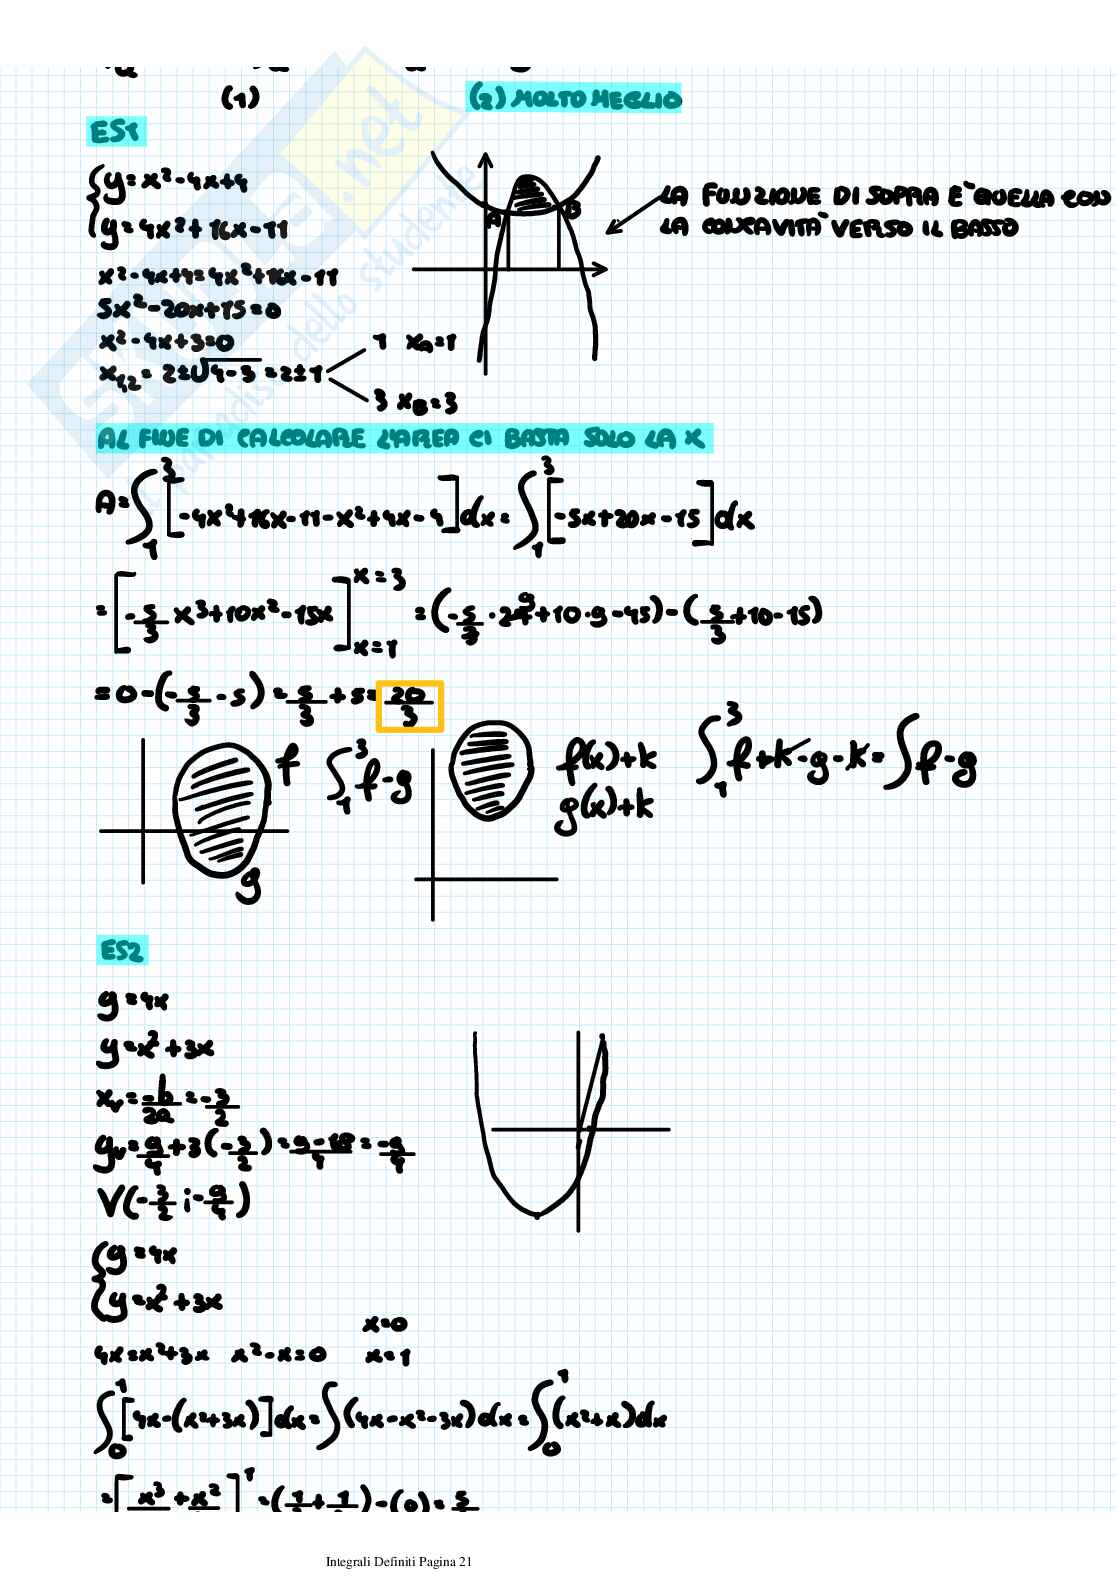 (1) (2) MOLTO MEGLIO
ES1
y=x²-4x+4
y=4x²+16x-11
LA FUNZIONE DI SOPRA È QUELLA CON
LA CONCAVITÀ VERSO IL BASSO
A B
x²-4x+4=4x²+16x-11
5x²-20x+15=0
x²-4x+3=0
x₁,₂=2±√4-3=2±1
1 x_A=1
3 x_B=3
AL FINE DI CALCOLARE L'AREA CI BASTA SOLO LA X
A=∫₁³[-4x²+16x-11-x²+4x-4]dx=∫₁³[-5x+20x-15]dx
=[-5/3 x³+10x²-15x]^{x=3}_{x=1}=(-5/3·27 9+10·9-45)-(5/3+10-15)
=0-(-5/3-5)=5/3+5=20/3
f ∫₁³ f-g f(x)+k ∫₁³ f+k-g-k=∫f-g
g(x)+k
g
ES2
y=4x
y=x²+3x
x_v=-b/2a=-3/2
y_v=9/4+3(-3/2)=9-18/4=-9/4
V(-3/2;-9/4)
y=4x
y=x²+3x
x=0
4x=x²+3x x²-x=0 x=1
∫₀¹[4x-(x²+3x)]dx=∫(4x-x²-3x)dx=∫₀¹(x²+x)dx
=[x³+x²]¹=(1+1)-(0)=5
Integrali Definiti Pagina 21
SKUOLA.net
dello studente